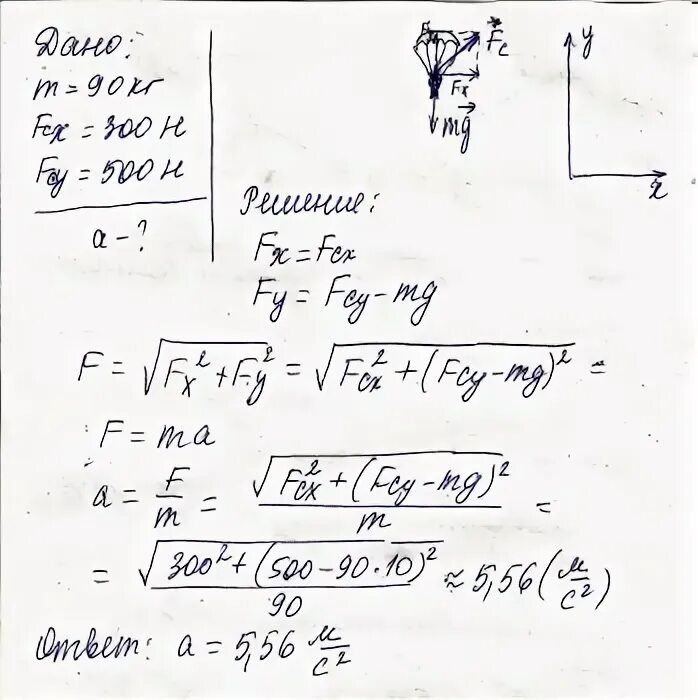 Дано:
m = 90 кг
Fcx = 300 Н
Fcy = 500 Н
a - ?
Fc
Fx
mg
y
x
Решение:
Fx = Fcx
Fy = Fcy - mg
F = √(Fx² + Fy²) = √(Fcx² + (Fcy - mg)²) =
F = ma
a = F/m = √(Fcx² + (Fcy - mg)²)/m =
= √(300² + (500 - 90·10)²)/90 ≈ 5,56 (м/с²)
Ответ: a = 5,56 м/с²